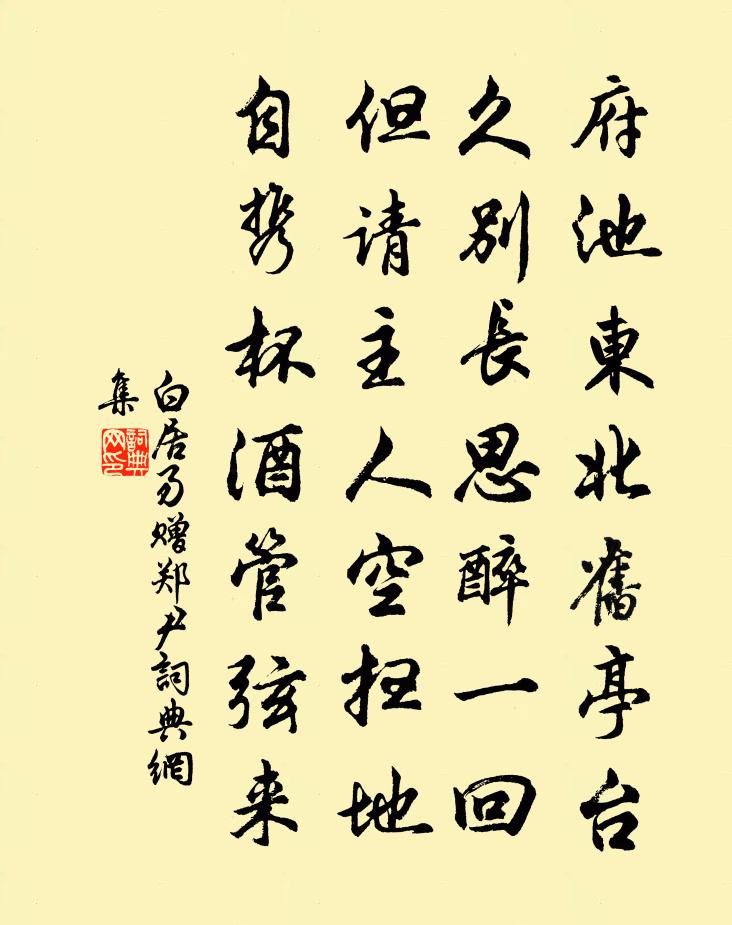 府池東北舊亭台
久别長思醉一回
但请主人空扫地
自携杯酒管弦来
白居易赠郑尹詞典網
集
詞典
网印